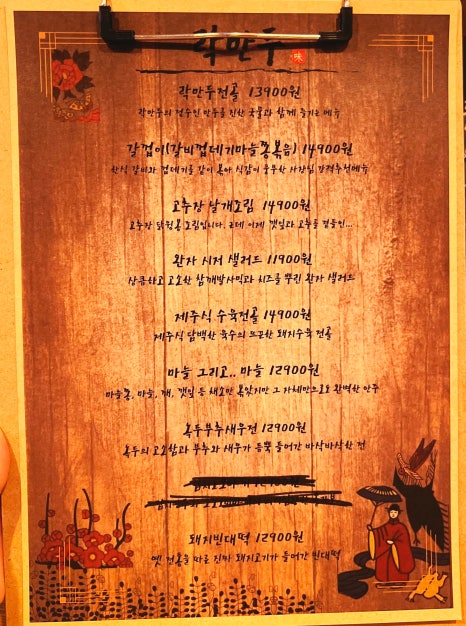 락만두
味
락만두전골 13900원
락만두의 정수인 만두를 진한 국물과 함께 즐기는 메뉴
갈껍이(갈비껍데기마늘쫑볶음) 14900원
한식 갈비와 껍데기를 같이 볶아 식감이 풍부한 사장님 강력추천메뉴
고추장 날개조림 14900원
고추장 닭윙봉 조림입니다. 근데 이제 깻잎과 고추를 곁들인...
완자 시저 샐러드 11900원
상큼하고 고소한 참깨발사믹과 치즈를 뿌린 완자 샐러드
제주식 수육전골 14900원
제주식 담백한 육수의 뜨끈한 돼지수육 전골
마늘 그리고.. 마늘 12900원
마늘쫑, 마늘, 깨, 깻잎 등 채소만 볶았지만 그 자체만으로도 완벽한 안주
녹두부추새우전 12900원
녹두의 고소함과 부추와 새우가 듬뿍 들어간 바삭바삭한 전
돼지빈대떡 12900원
옛 전통을 따른 진짜 돼지고기가 들어간 빈대떡